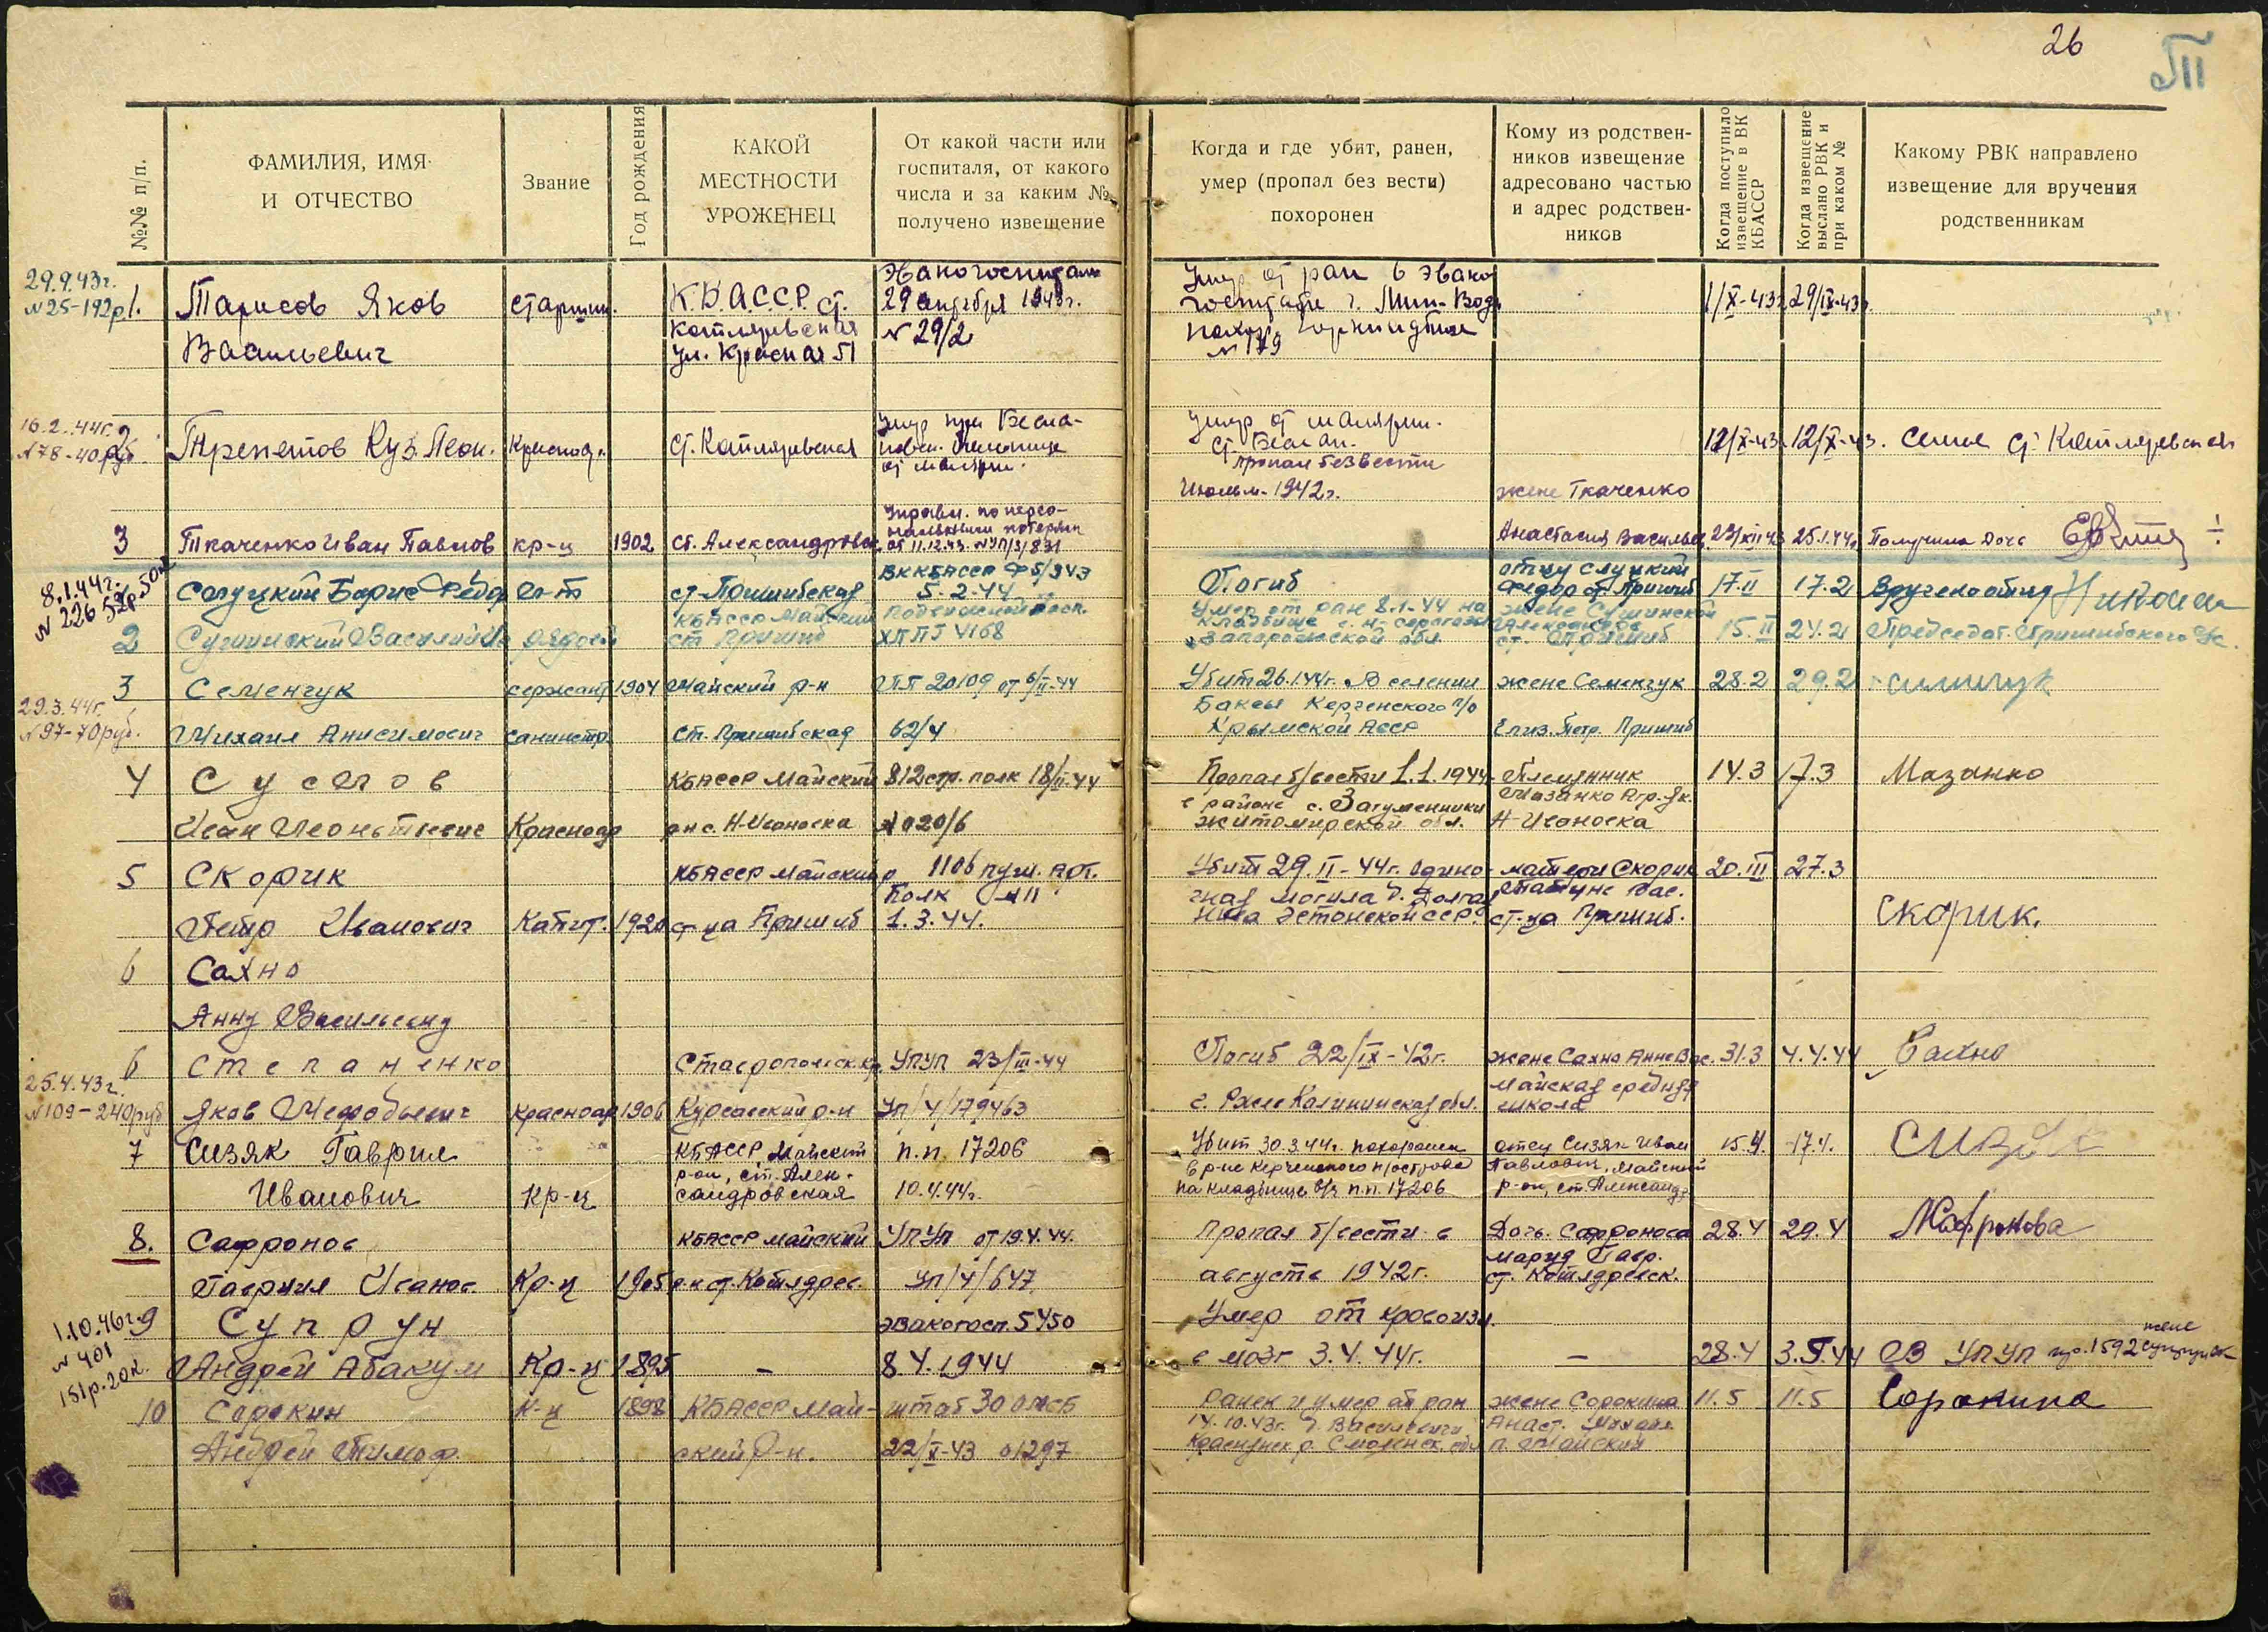 26
П
№№ п/п.
ФАМИЛИЯ, ИМЯ
И ОТЧЕСТВО
Звание
Год рождения
КАКОЙ
МЕСТНОСТИ
УРОЖЕНЕЦ
От какой части или
госпиталя, от какого
числа и за каким №
получено извещение
Когда и где убит, ранен,
умер (пропал без вести)
похоронен
Кому из родствен-
ников извещение
адресовано частью
и адрес родствен-
ников
Когда поступило
извещение в ВК
КБАССР
Когда извещение
выслано РВК и
при каком №
Какому РВК направлено
извещение для вручения
родственникам
29.9.43г.
№25-192р
1. Тарасов Яков
Васильевич
старшин.
К.Б.А.С.С.Р. ст.
Котляревская
ул. Красная 51
Эвакогоспиталь
29 1943г.
№ 29/2
Умер от ран в Эвако
госпитале г. Мин-Воды
№ 179
1/X-43г. 29/IX-43г.
16.2.44г.
№78-40руб.
2 Трепетов Куз. Леон.
Красноар.
ст. Котляревская
Умер при Бесла-
от маляри.
Умер от малярии.
ст. Беслан.
12/X-43 12/X-43. Семье ст. Котляревской
пропал без вести
Июль м. 1942г.
жене Ткаченко
Анастасия Васильев.
3 Ткаченко Иван Павлов
кр-ц
1902
ст. Александровск.
Управл. по персо-
нальным потерям
от 11.12.43. №УП/3/831
23/XII 43 25.1.44г. Получила дочь
8.1.44г.
№ 226 52р. 50к
Слуцкий Борис Федор
л-т
ст. Пришибская
ВККБАССР Ф5/943
5-2-44
Погиб
отцу Слуцкий
Федор ст. Пришиб
17.II 17.2 Вручено отцу
2 Сушинский Василий Ив
рядовой
КБАССР Майский
ст Пришиб
ХППГ 4168
Умер от ран 8.1-44 на
кладбище с. Н-Серогозы
Запорожской обл
жене Сушинской
Александре
ст. Пришиб
15.II 24.2 Председат. Пришибского с/с.
3 Семенчук
Михаил Анисимович
29.3.44г.
№97-70руб.
сержант
санинстр.
1904
Майский р-н
ст. Пришибская
ПП 20109 от 6/II-44
62/4
Убит 26.1.44г. В селении
Баксы Керченского п/о
Крымской АССР
жене Семенчук
Елиз. Петр. Пришиб
28.2 29.2 Семенчук
4 Суслов
Иван Леонтьевич
Красноар
КБАССР Майский
р-н с. Н-Ивановка
812 стр. полк 18/II-44
№020/6
Пропал б/вести 1.1.1944
в районе с. Загуменники
Житомирской обл.
Племянник
Мазанко Агр. Як.
Н-Ивановка
14.3 17.3 Мазанко
5 Скорик
Петр Иванович
Капит.
1920
КБАССР Майский р
ст-ца Пришиб
1106 пуш. Арт.
Полк №11
1.3.44.
Убит 29.II-44г. Одино-
чная могила д. Долгая
Нива Эстонской ССР.
матери Скорик
Татьяне Вас.
ст-ца Пришиб.
20.III 27.3
Скорик.
6 Сахно
Анну Васильевну
25.4.43г.
№109-240руб
6 Степаненко
Яков Мефодьевич
Красноар
1906
Ставропольск. кр.
Курсавский р-н
УПУП 23/III-44
УП/4/179463
Погиб 22/IX-42г.
г. Ржев Калининская обл.
жене Сахно Анне Вас.
Майская средняя
школа
31.3 4.4.44 Сахно
7 Сизяк Гаврил
Иванович
Кр-ц
КБАССР Майский
р-он, ст. Алек-
сандровская
п.п. 17206
10.4.44г.
Убит 30.3.44г. похоронен
в р-не Керченского п/острова
на кладбище в/ч п.п. 17206
отец Сизяк Иван
Павлович, Майский
р-он, ст. Александр.
15.4 17.4. Сизяк
8. Сафронов
Гавриил Иванов.
Кр-ц
1905
КБАССР Майский
р-н ст. Котлярев.
УПУП от 19.4.44.
УП/4/647
Пропал б/вести в
августе 1942г.
Дочь. Сафронова
Мария Гавр.
ст. Котляревск.
28.4 29.4 МСафронова
1.10.46г.
№ 401
151р.20к.
9 Супрун
Андрей Абакум
Кр-ц
1895
-
эвакогосп. 5450
8.4.1944
Умер от кровоизл.
в мозг 3.4.44г.
-
28.4 3.5.44 ОВ УПУП пр. 1592 жене Супрун
10 Сорокин
Андрей Тимоф.
К-ц
1898
КБАССР Май-
ский р-н.
штаб 30 ОМСБ
22/X-43 01297
Ранен и умер от ран
14.10.43г. д. Васильевичи
Краснинск. р. Смоленск. обл
жене Сорокина
Анаст. Михайл
п. Майский
11.5 11.5 Сорокина